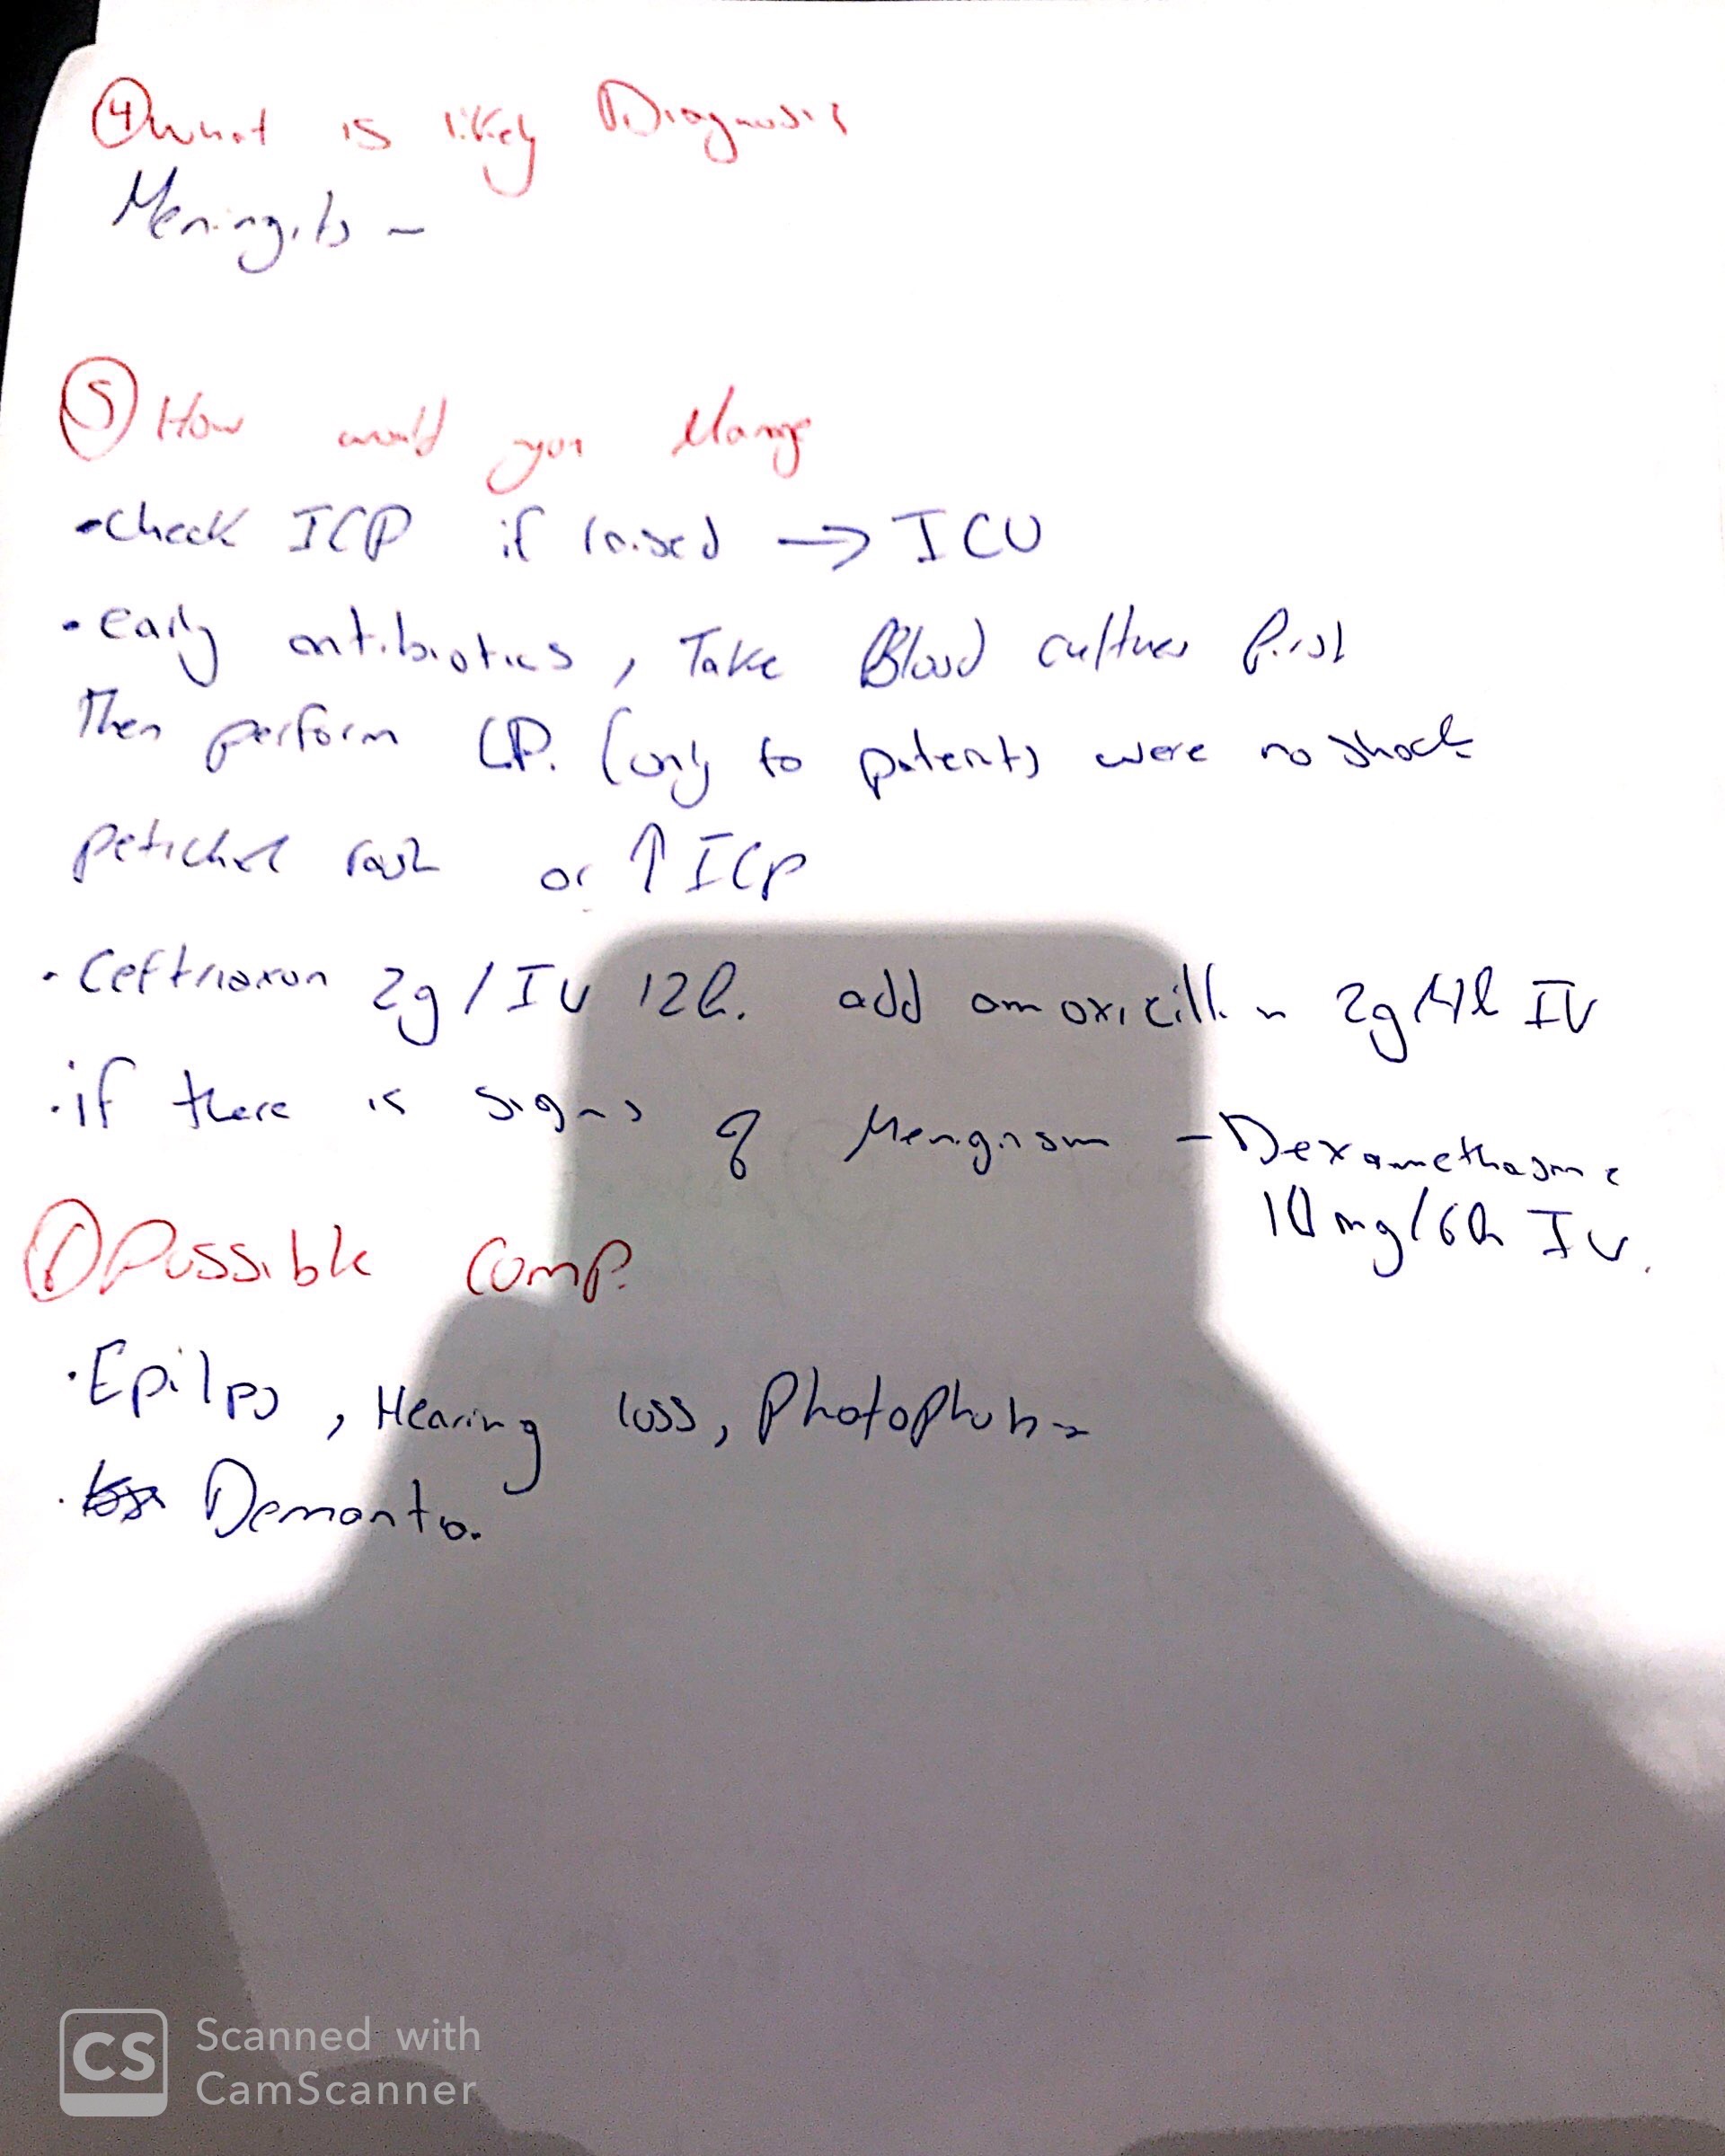 ④ What is likely Diagnosis
Meningitis -
⑤ How would you Manage
- check ICP if raised → ICU
• early antibiotics, Take Blood cultures first
Then perform LP. (only to patients were no shock
petichal rash or ↑ ICP
• Ceftriaxon 2g / IV 12h. add amoxicillin 2g /4h IV
• if there is signs of Mengism - Dexamethasone
10mg/6h IV.
Possible Comp.
• Epilpsy, Hearing loss, Photophobia
• Dementia.
CS Scanned with
CamScanner